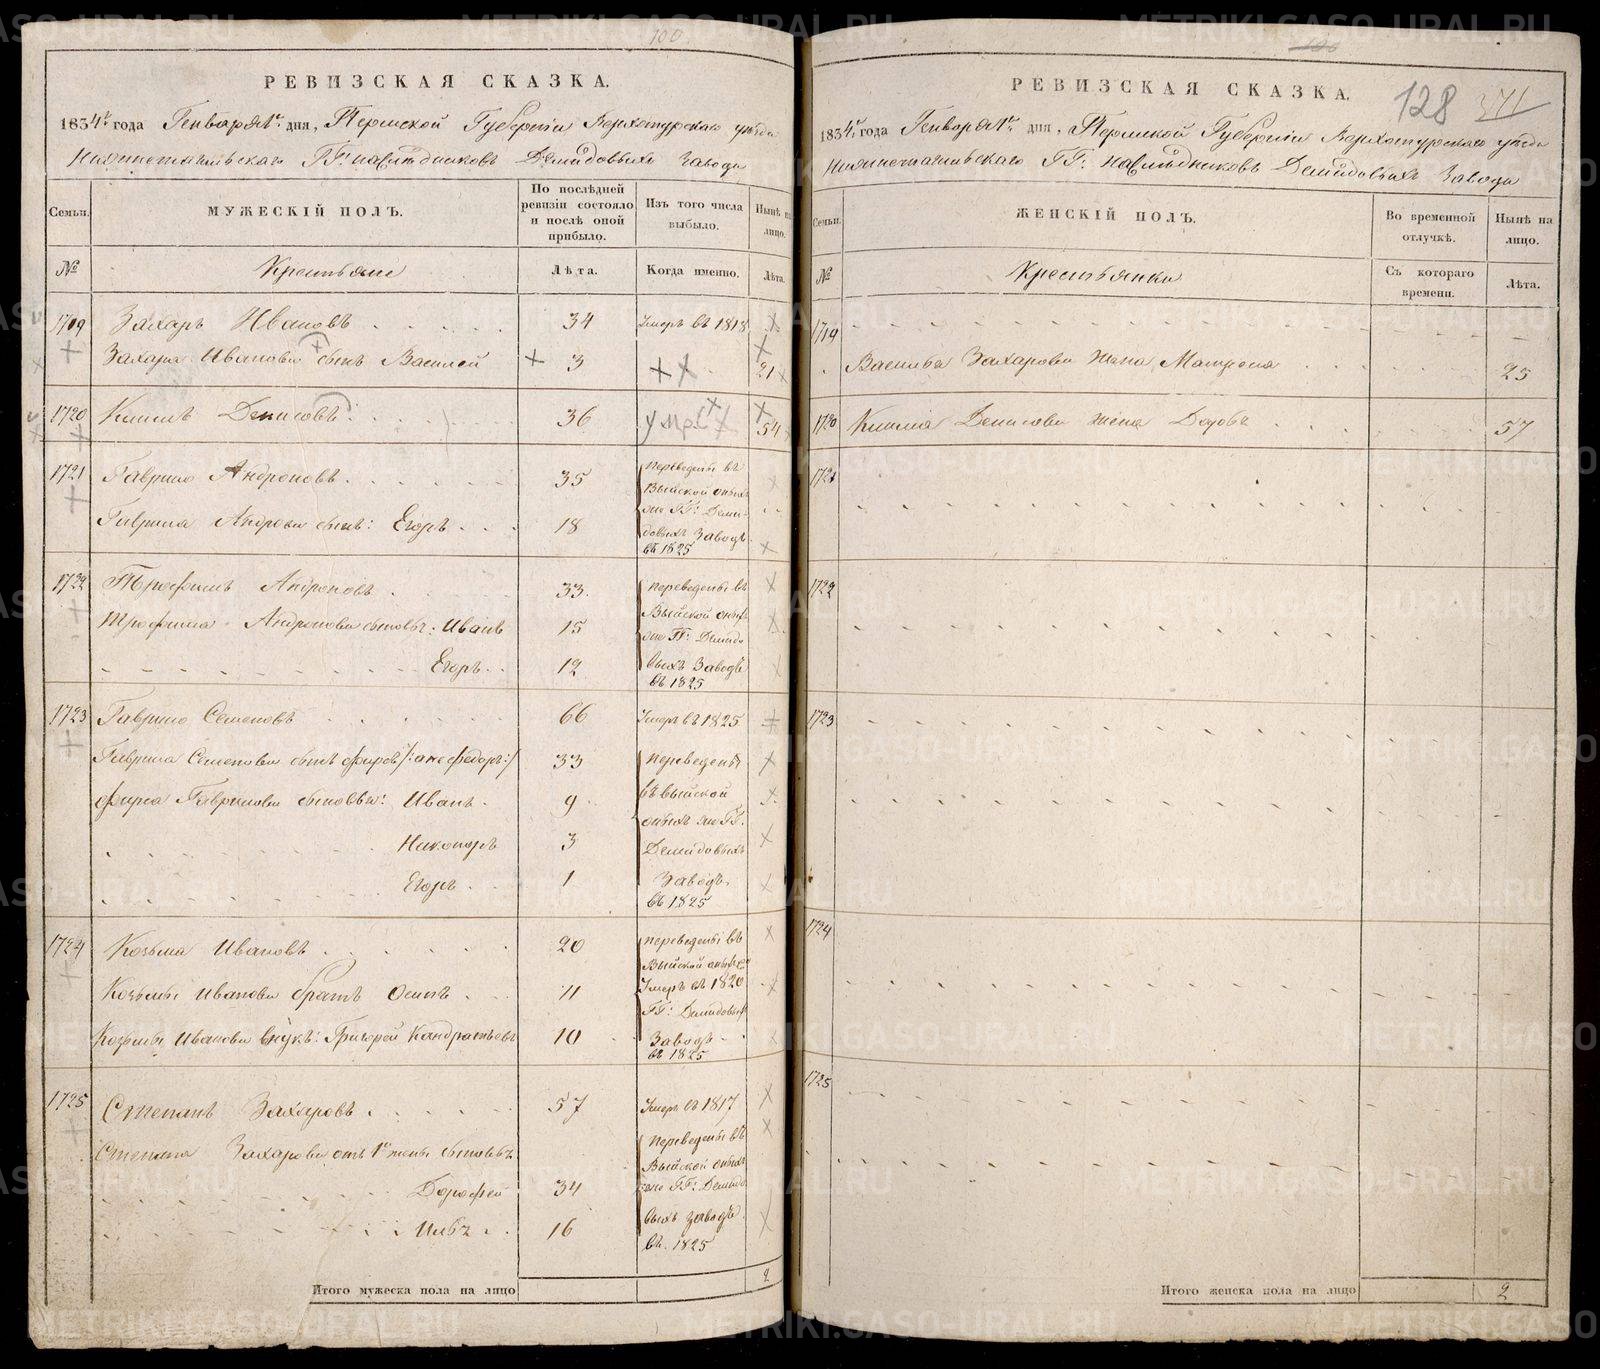 100
РЕВИЗСКАЯ СКАЗКА.
1834го года Генваря 1го дня, Пермской Губернiи Верхотурскаго уѣзда
Нижнетагильскаго ГГ: наслѣдниковъ Демидовыхъ Завода
Семьи.
МУЖЕСКІЙ ПОЛЪ.
По послѣдней ревизіи состояло и послѣ оной прибыло.
Изъ того числа выбыло.
Нынѣ на лицо.
№
Крестьяне
Лѣта.
Когда именно.
Лѣта.
1719 Захаръ Ивановъ 34 Умеръ въ 1818
Захара Иванова сынъ Василей 3 21
1720 Климъ Денисовъ 36 умр. 54
1721 Гаврило Андроновъ 35 переведены въ
Выйской оныхъ
Гаврила Андронова сынъ: Егоръ 18 же ГГ: Деми-
довыхъ Заводъ
въ 1825
1722 Трофимъ Андроновъ 33. переведены въ
Выйской оныхъ
Трофима Андронова сыновья: Иванъ 15 же ГГ: Демидо
Егоръ 12 выхъ Заводъ
въ 1825
1723 Гаврило Семеновъ 66 Умеръ въ 1825
Гаврила Семенова сынъ Фирсъ /: а не Федоръ :/ 33 переведены
Фирса Гаврилова сыновья: Иванъ 9 въ Выйской
оныхъ же ГГ.
Никоноръ 3 Демидовыхъ
Егоръ 1 Заводъ
въ 1825
1724 Козьма Ивановъ 20 переведены въ
Выйской оныхъ
Козьмы Иванова братъ Осипъ 11 Умеръ въ 1820
ГГ: Демидовыхъ
Козьмы Иванова внукъ: Григорей Кандратьевъ 10 Заводъ
въ 1825
1725 Степанъ Захаровъ 57 Умеръ въ 1817
Степана Захарова отъ 1й жены сыновья переведены въ
Выйской оныхъ
Дорофей 34 же ГГ: Демидо
16 выхъ заводъ
въ 1825
Итого мужеска пола на лицо 2
РЕВИЗСКАЯ СКАЗКА.
128 371
1834го года Генваря 1го дня, Пермской Губернiи Верхотурскаго уѣзда
Нижнетагильскаго ГГ: наслѣдниковъ Демидовыхъ Завода
Семьи.
ЖЕНСКІЙ ПОЛЪ.
Во временной отлучкѣ.
Нынѣ на лицо.
№
Крестьянки
Съ котораго времени.
Лѣта.
1719
Василья Захарова жена Матрона 25
1720 Клима Денисова жена 57
1721
1722
1723
1724
1725
Итого женска пола на лицо 2
METRIKI.GASO-URAL.RU